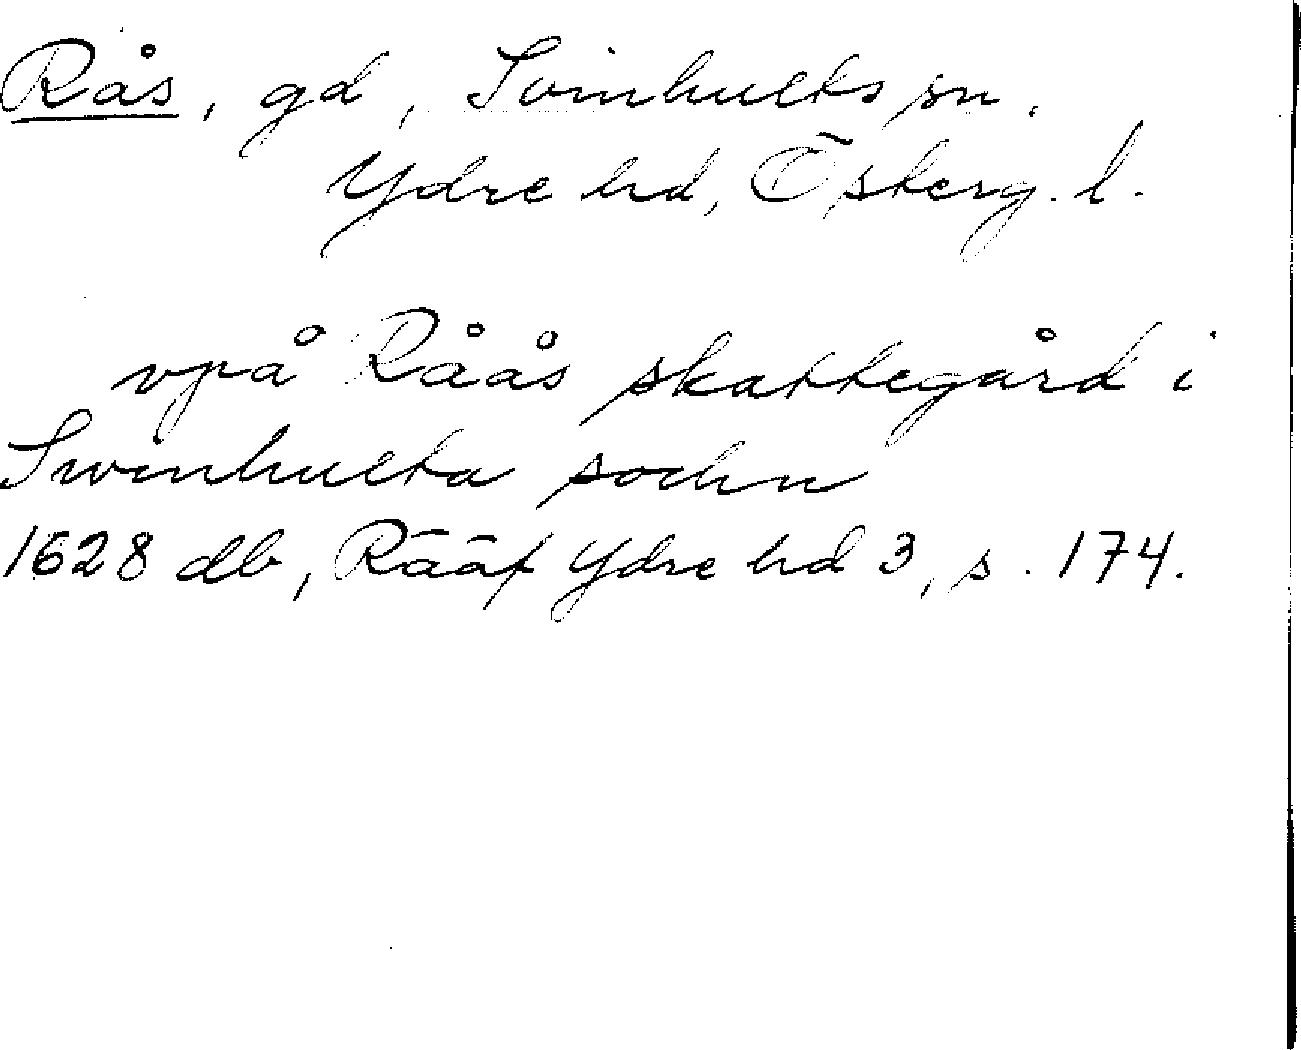 Rås, gd, Svinhults sn.
Ydre hd, Österg. l.
vpå Råås skattegård i
Swinhulta sochn
1628 db, Rääf Ydre hd 3, s. 174.